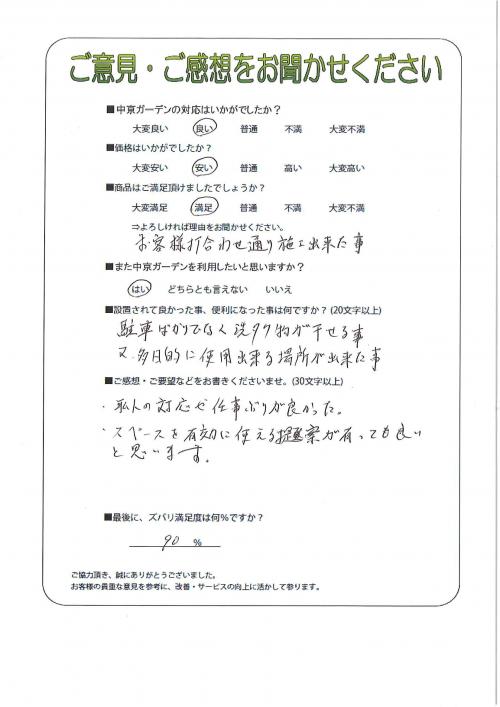 ご意見・ご感想をお聞かせください
■中京ガーデンの対応はいかがでしたか？
大変良い 良い 普通 不満 大変不満
■価格はいかがでしたか？
大変安い 安い 普通 高い 大変高い
■商品はご満足頂けましたでしょうか？
大変満足 満足 普通 不満 大変不満
⇒よろしければ理由をお聞かせください。
お客様打合わせ通り施工出来た事
■また中京ガーデンを利用したいと思いますか？
はい どちらとも言えない いいえ
■設置されて良かった事、便利になった事は何ですか？(20文字以上)
駐車ばかりでなく洗タク物が干せる事
又、多目的に使用出来る場所が出来た事
■ご感想・ご要望などをお書きくださいませ。(30文字以上)
・職人の対応や仕事ぶりが良かった。
・スペースを有効に使える提案が有っても良い
と思います。
■最後に、ズバリ満足度は何%ですか？
90 %
ご協力頂き、誠にありがとうございました。
お客様の貴重な意見を参考に、改善・サービスの向上に活かして参ります。